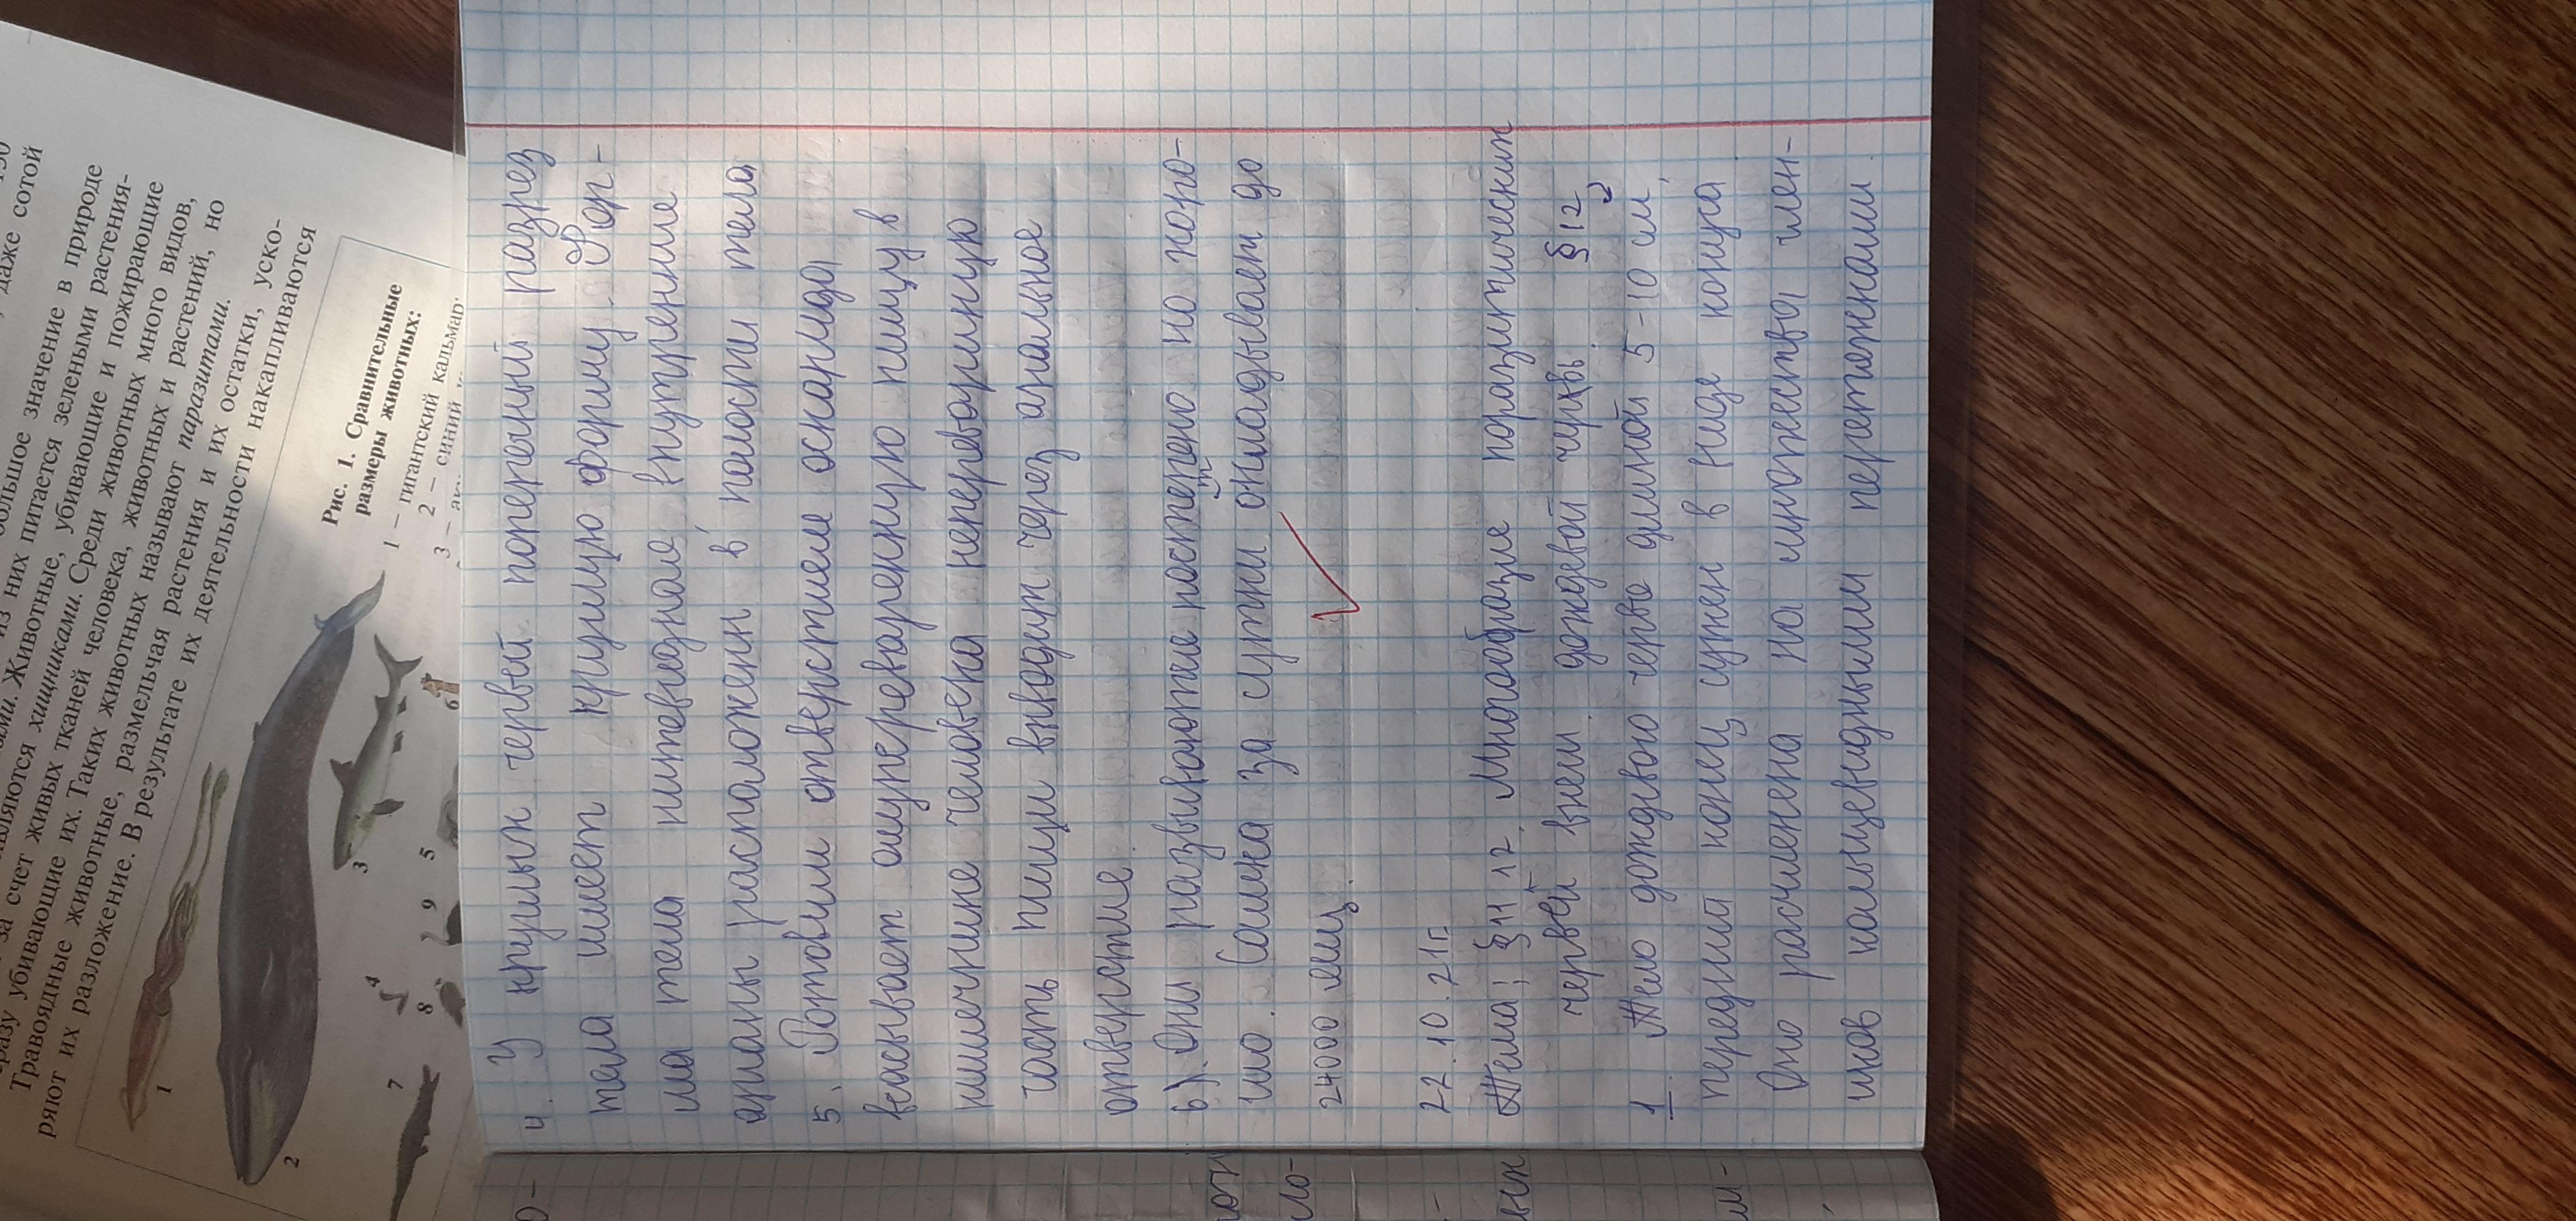 даже сотой
большое значение в природе
из них питается зелеными растения-
ми. Животные, убивающие и пожирающие
вляются хищниками. Среди животных много видов,
за счет живых тканей человека, животных и растений, но
разу убивающие их. Таких животных называют паразитами.
Травоядные животные, размельчая растения и их остатки, уско-
ряют их разложение. В результате их деятельности накапливаются
Рис. 1. Сравнительные
размеры животных:
1 – гигантский кальмар;
2 – синий
3 –
1
2
3
4
5
6
7
8
9
4. У круглых червей поперечный разрез
тела имеет круглую форму. Фор-
ма тела нитевидное, внутренние
органы расположены в полости тела
5. Ротовым отверстием аскарида
всасывает
кишечнике человека непереваримую
часть пищи выводит через анальное
отверстие.
6). Они развиваются постепено по поко-
. Самка за сутки откладывает до
24000 яиц.
22.10.21г.
Тема: §11 12. Многообразие паразитических
червей внеш дождевой червь. §12
1. Тело дождевого червя длиной 5-10 см,
передний конец сужен в виде конуса
Оно расчленена на множества член-
иков кольцевидными перетяжками